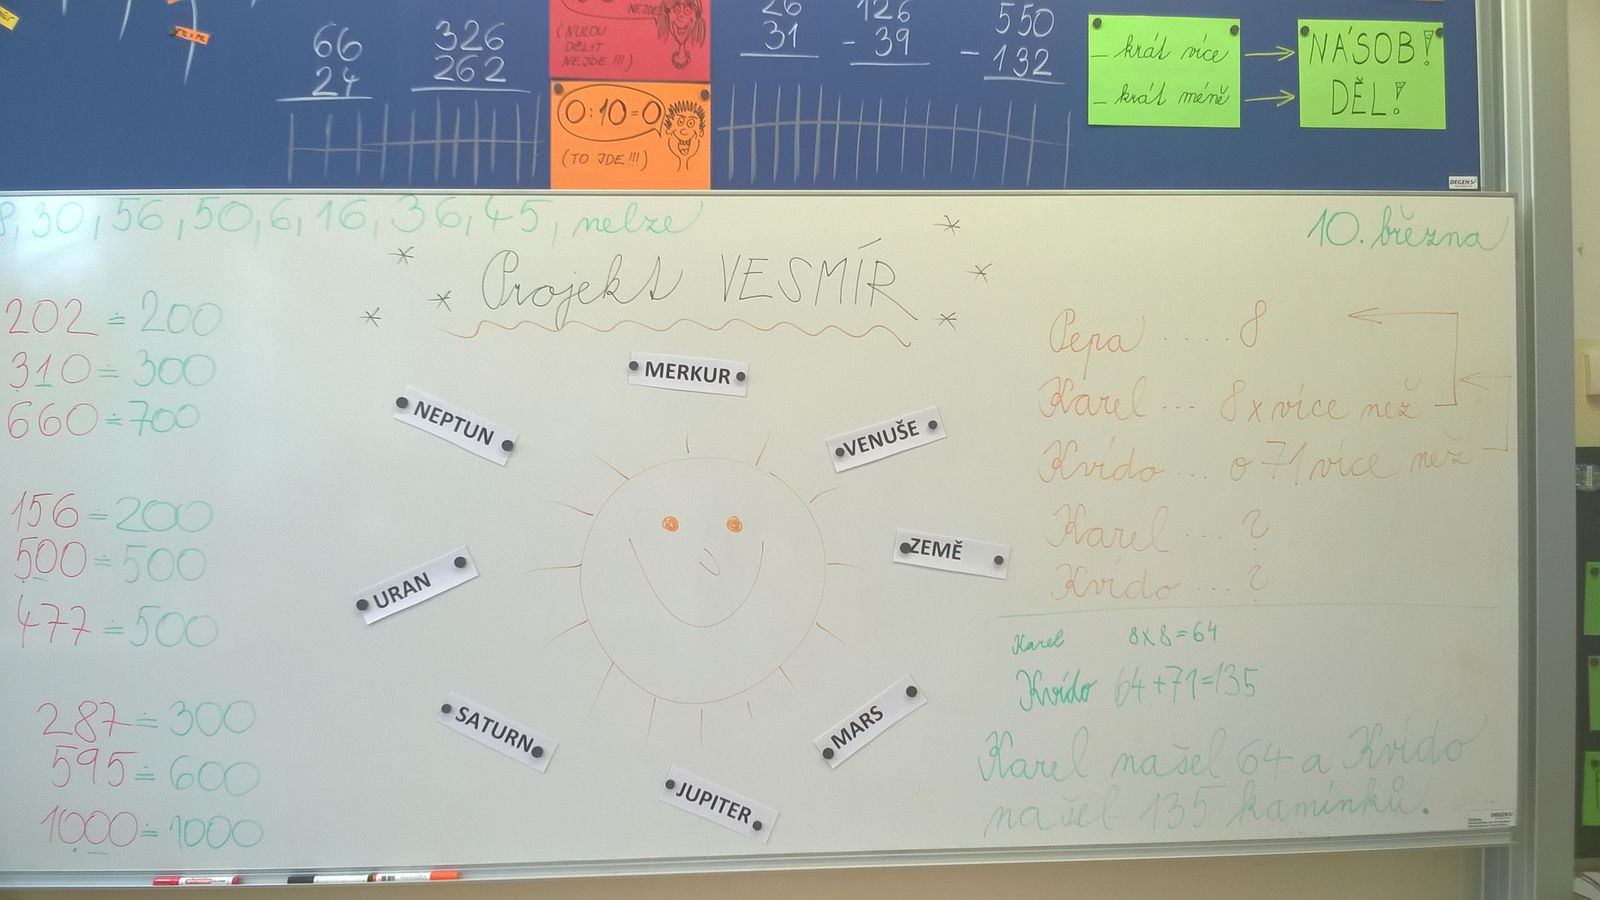 66
24
326
262
NEJDE
(NULOU
DĚLIT
NEJDE!!!)
0:10=0
(TO JDE!!!)
26
31
126
- 39
550
- 132
- krát více
- krát méně
NÁSOB!
DĚL!
DEGEN
8, 30, 56, 50, 6, 16, 36, 45, nelze
10. března
Projekt VESMÍR
202 ≐ 200
310 ≐ 300
660 ≐ 700
156 ≐ 200
500 ≐ 500
477 ≐ 500
287 ≐ 300
595 ≐ 600
1000 ≐ 1000
MERKUR
VENUŠE
ZEMĚ
MARS
JUPITER
SATURN
URAN
NEPTUN
Pepa .... 8
Karel ... 8x více než
Kvído ... o 71 více než
Karel ... ?
Kvído ... ?
Karel 8x8=64
Kvído 64+71=135
Karel našel 64 a Kvído
našel 135 kamínků.
DEGEN